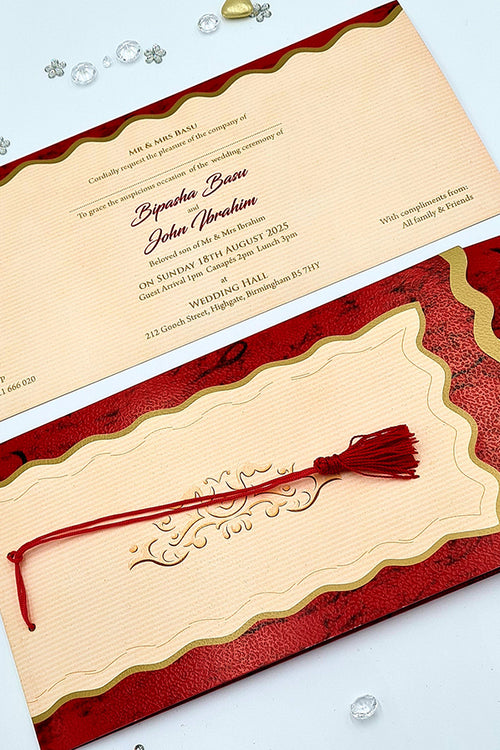 Mr & Mrs Basu
Cordially request the pleasure of the company of
To grace the auspicious occasion of the wedding ceremony of
Bipasha Basu
and
John Ibrahim
Beloved son of Mr & Mrs Ibrahim
on Sunday 18th August 2025
Guest Arrival 1pm Canapés 2pm Lunch 3pm
at
Wedding Hall
212 Gooch Street, Highgate, Birmingham B5 7HY
With compliments from:
All family & Friends
P
1 666 020